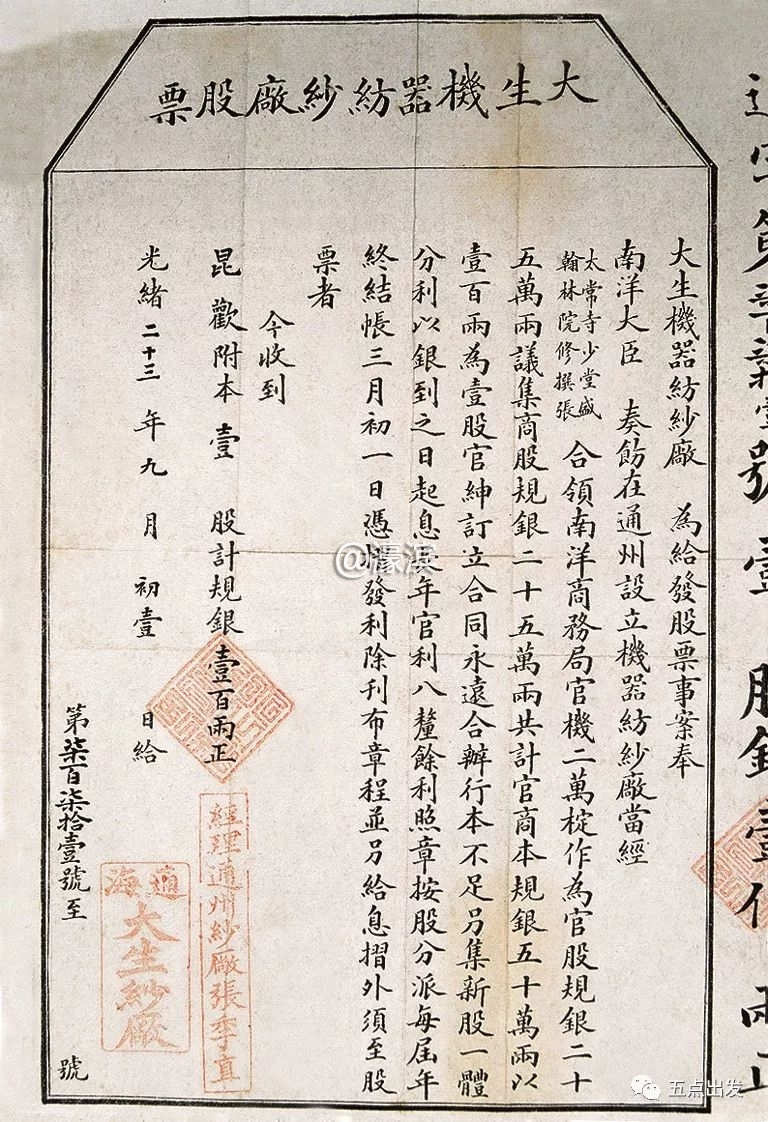 大生機器紡紗廠股票
大生機器紡紗廠　為給發股票事案奉
南洋大臣　奏飭在通州設立機器紡紗廠當經
太常寺少堂盛
翰林院修撰張
合領南洋商務局官機二萬梃作為官股規銀二十
五萬兩議集商股規銀二十五萬兩共計官商本規銀五十萬兩以
壹百兩為壹股官紳訂立合同永遠合辦行本不足另集新股一體
分利以銀到之日起息長年官利八釐餘利照章按股分派每屆年
終結帳三月初一日憑摺發利除刊布章程並另給息摺外須至股
票者
今收到
昆歡附本壹　股計規銀壹百兩正
光緒二十三年九月初壹　日給
第柒百柒拾壹號至　號
經理通州紗廠張季直
通海
大生紗廠
第柒百柒拾壹號壹股銀壹佰兩正
@濠濱
五点出发